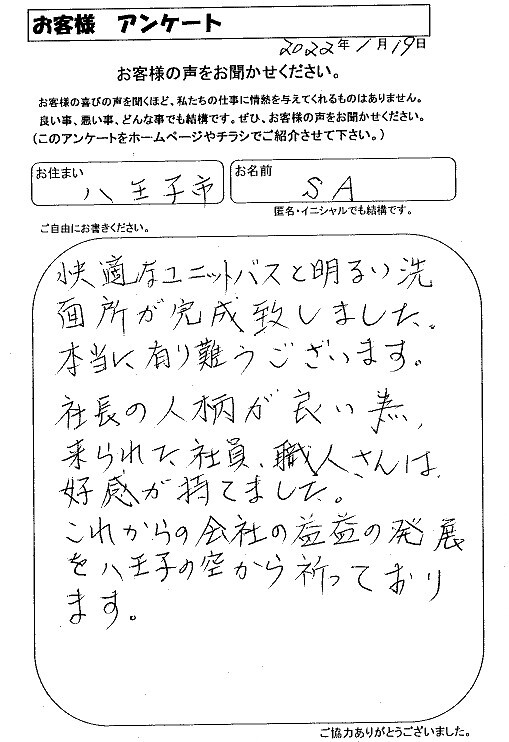 お客様 アンケート
2022年1月19日
お客様の声をお聞かせください。
お客様の喜びの声を聞くほど、私たちの仕事に情熱を与えてくれるものはありません。
良い事、悪い事、どんな事でも結構です。ぜひ、お客様の声をお聞かせください。
(このアンケートをホームページやチラシでご紹介させて下さい。)
お住まい 八王子市
お名前 S A
匿名・イニシャルでも結構です。
ご自由にお書きください。
快適なユニットバスと明るい洗
面所が完成致しました。
本当に有り難うございます。
社長の人柄が良い為、
来られた社員、職人さんは、
好感が持てました。
これからの会社の益益の発展
を八王子の空から祈っており
ます。
ご協力ありがとうございました。